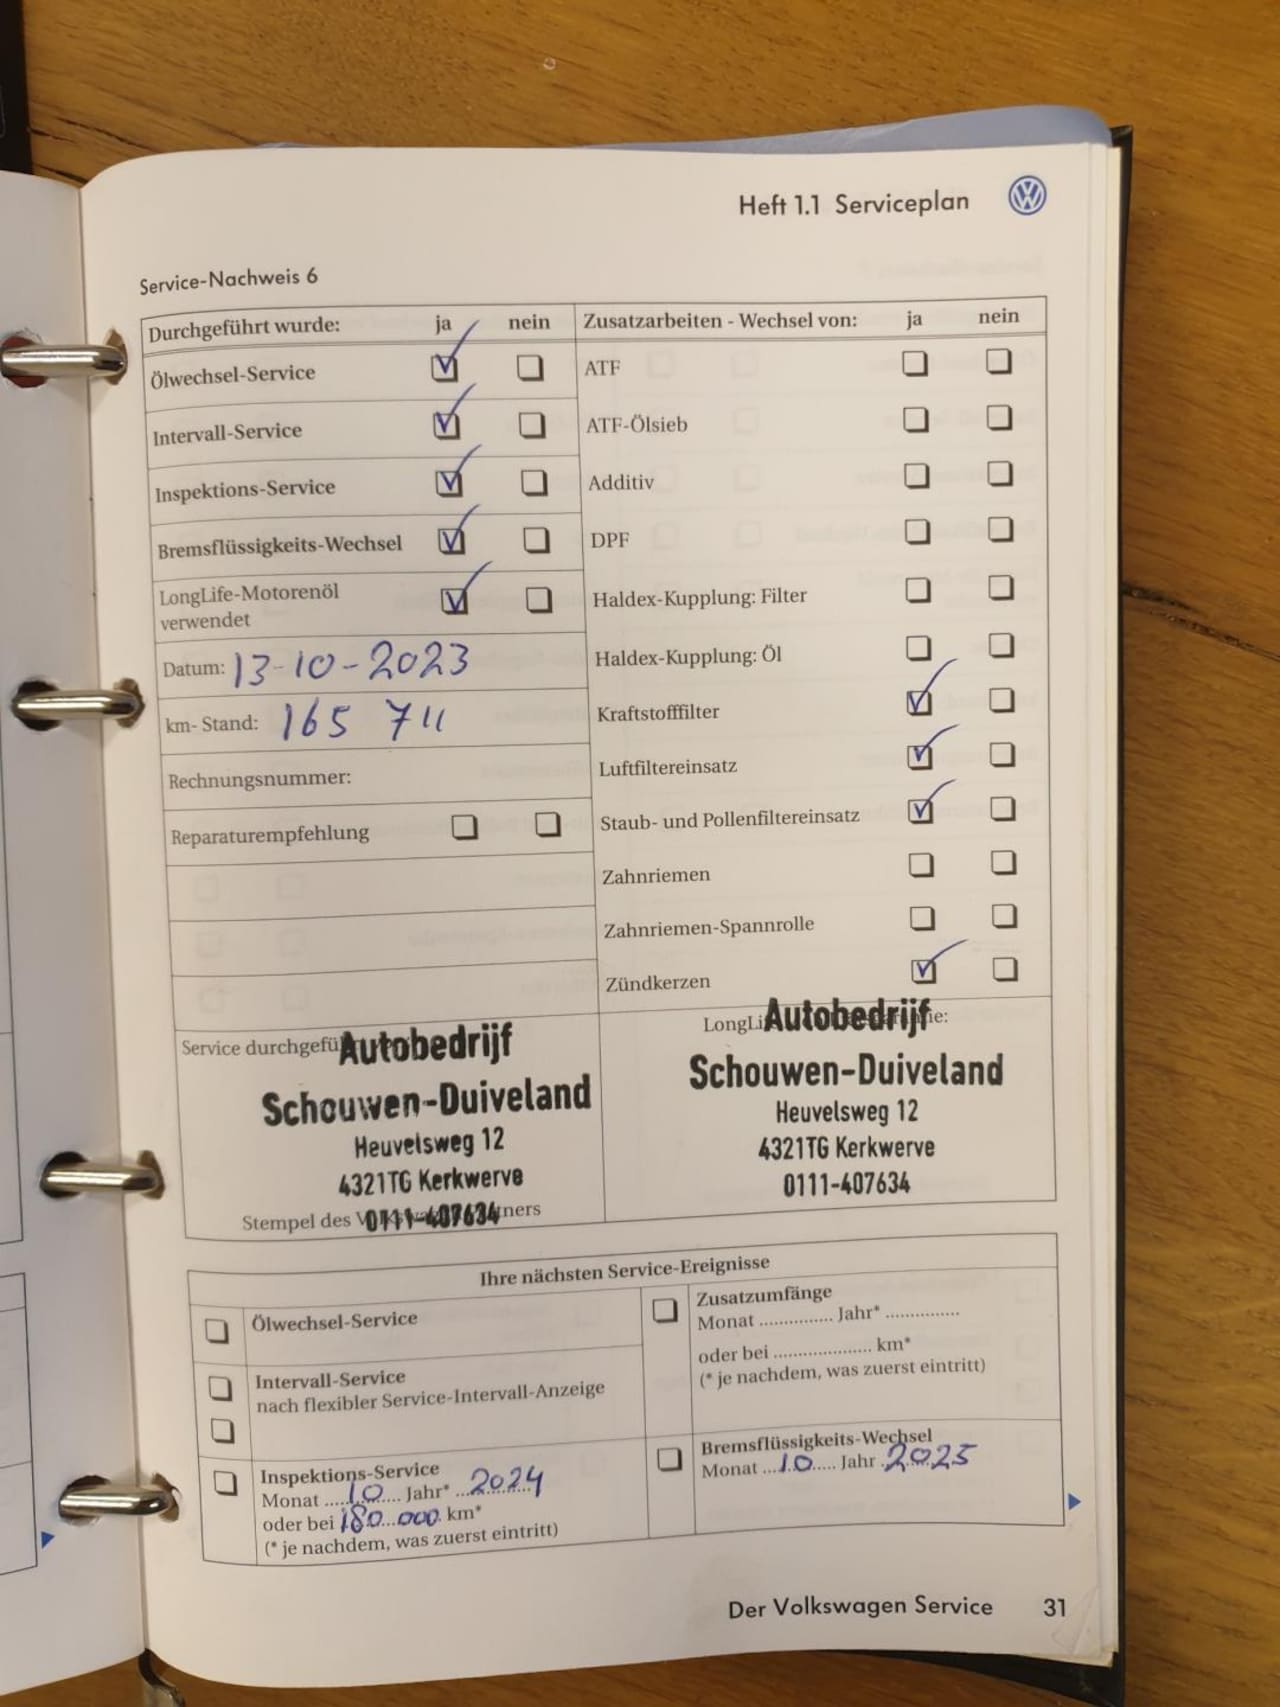 Heft 1.1 Serviceplan
Service-Nachweis 6
Durchgeführt wurde: ja nein
Ölwechsel-Service
Intervall-Service
Inspektions-Service
Bremsflüssigkeits-Wechsel
LongLife-Motorenöl
verwendet
Datum: 13-10-2023
km- Stand: 165 711
Rechnungsnummer:
Reparaturempfehlung
Zusatzarbeiten - Wechsel von: ja nein
ATF
ATF-Ölsieb
Additiv
DPF
Haldex-Kupplung: Filter
Haldex-Kupplung: Öl
Kraftstofffilter
Luftfiltereinsatz
Staub- und Pollenfiltereinsatz
Zahnriemen
Zahnriemen-Spannrolle
Zündkerzen
Service
Autobedrijf
Schouwen-Duiveland
Heuvelsweg 12
4321TG Kerkwerve
0111-407634
Stempel des
Autobedrijf
Schouwen-Duiveland
Heuvelsweg 12
4321TG Kerkwerve
0111-407634
Ihre nächsten Service-Ereignisse
Ölwechsel-Service
Intervall-Service
nach flexibler Service-Intervall-Anzeige
Inspektions-Service
Monat 10 Jahr* 2024
oder bei 180.000 km*
(* je nachdem, was zuerst eintritt)
Zusatzumfänge
Monat ............... Jahr* ...............
oder bei .................... km*
(* je nachdem, was zuerst eintritt)
Bremsflüssigkeits-Wechsel
Monat 10 Jahr 2025
Der Volkswagen Service 31